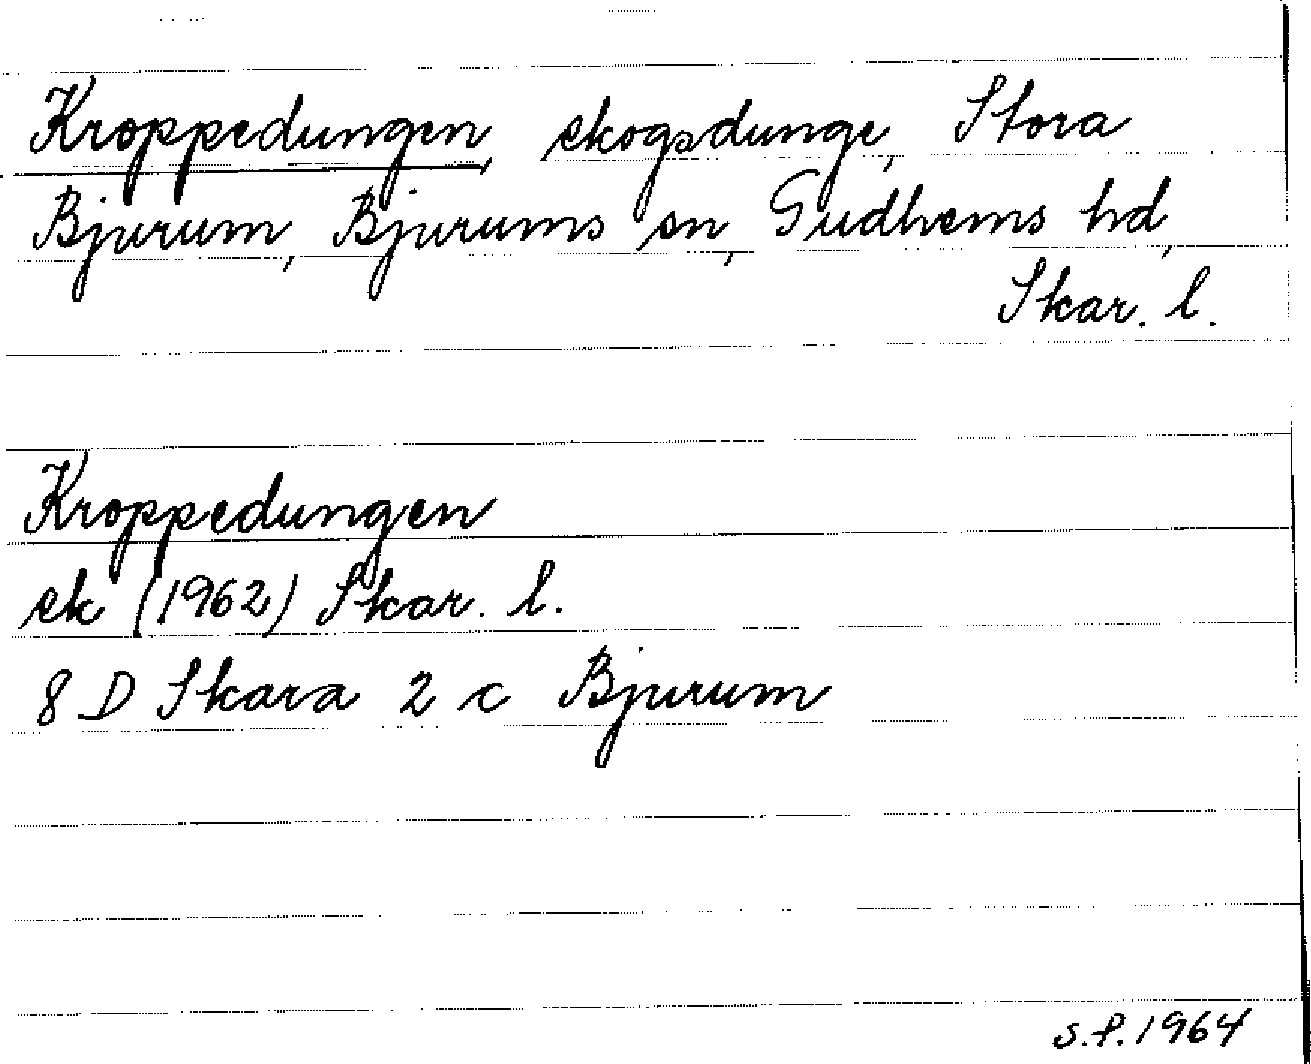 Kroppedungen, skogsdunge, Stora
Bjurum, Bjurums sn, Gudhems hd,
Skar. l.
Kroppedungen
ek (1962) Skar. l.
8 D Skara 2 c Bjurum
s.f. 1964